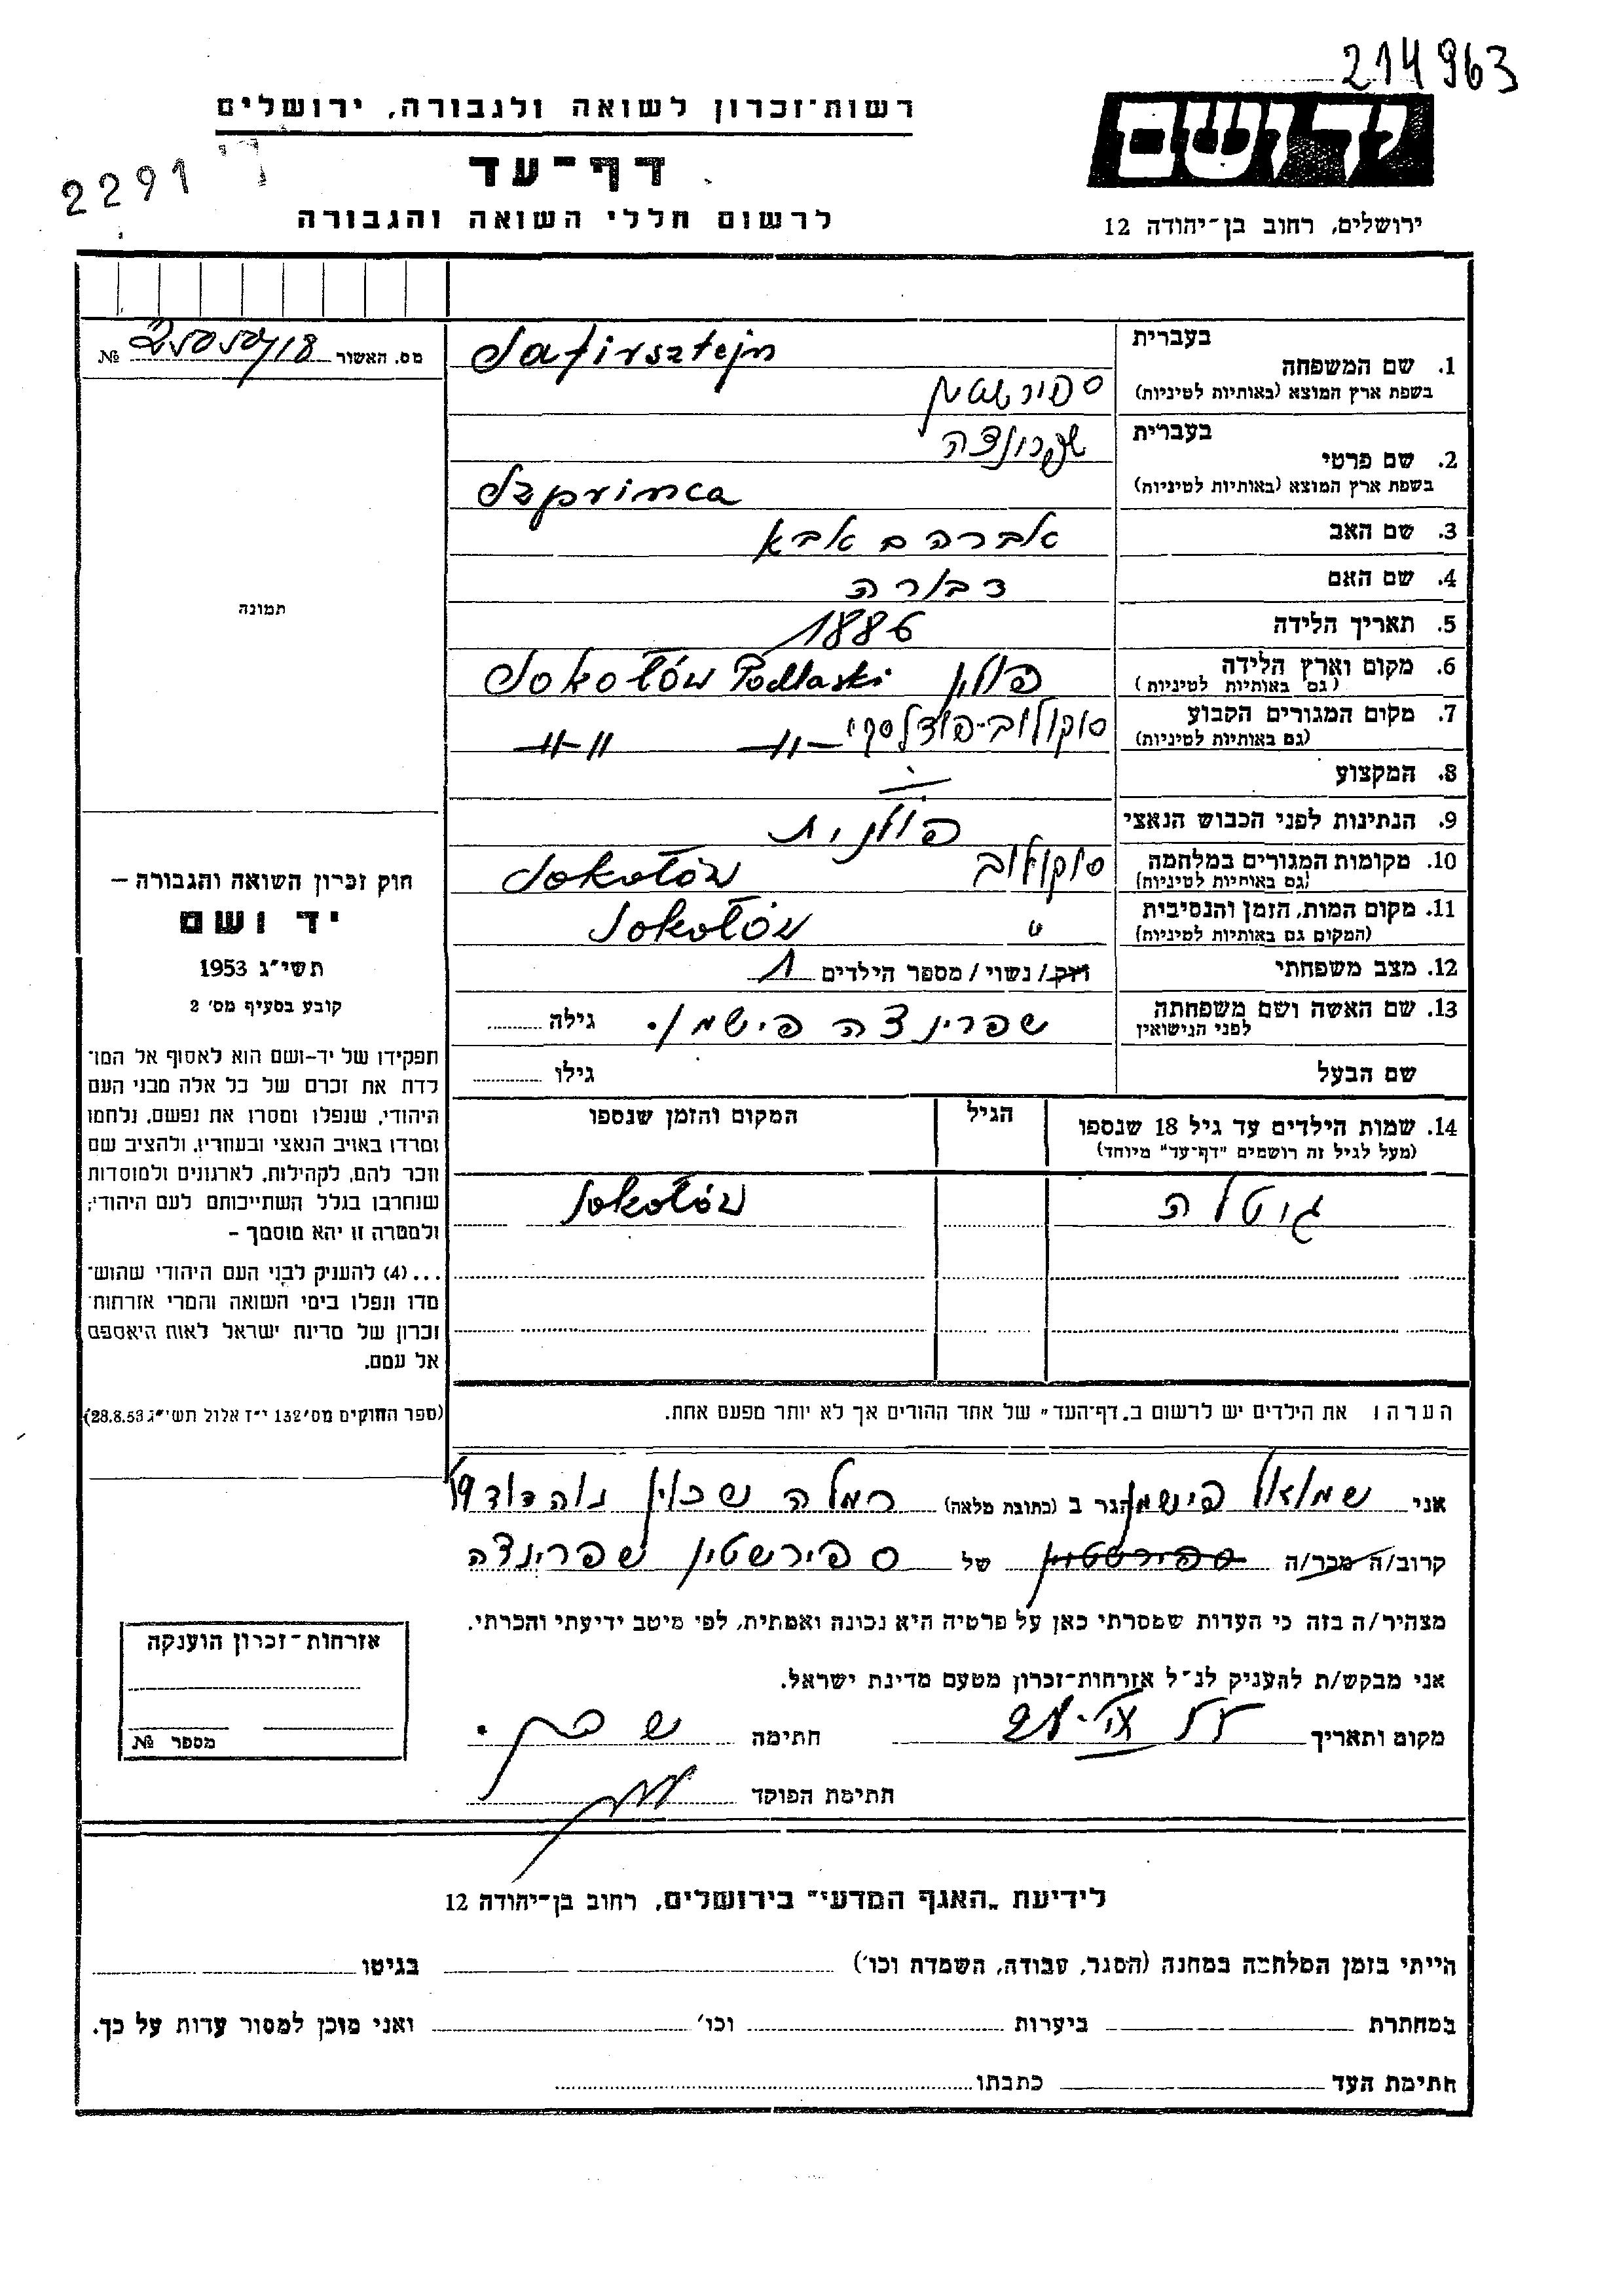 214963
רשות־זכרון לשואה ולגבורה, ירושלים
יד ושם
דף־עד
2291
לרשום חללי השואה והגבורה
ירושלים, רחוב בן־יהודה 12
מס. האשור №
בעברית
1. שם המשפחה Safirsztejn
בשפת ארץ המוצא (באותיות לטיניות) ספירשטין
בעברית שפרינצה
2. שם פרטי
בשפת ארץ המוצא (באותיות לטיניות) Szprinca
3. שם האב אברהם אבא
4. שם האם דבורה
תמונה
5. תאריך הלידה 1886
6. מקום וארץ הלידה פולין Sokołów Podlaski
(גם באותיות לטיניות)
7. מקום המגורים הקבוע סוקולוב-פודלסקי -"- -"-
(גם באותיות לטיניות)
8. המקצוע
9. הנתינות לפני הכבוש הנאצי פולנית
10. מקומות המגורים במלחמה סוקולוב Sokołów
(גם באותיות לטיניות)
11. מקום המות, הזמן והנסיבות " Sokołów
(המקום גם באותיות לטיניות)
12. מצב משפחתי רוק/ נשוי / מספר הילדים 1
13. שם האשה ושם משפחתה שפרינצה פישמן. גילה
לפני הנישואין
שם הבעל גילו
14. שמות הילדים עד גיל 18 שנספו הגיל המקום והזמן שנספו
(מעל לגיל זה רושמים "דף־עד" מיוחד)
גיטלה Sokołów
הערה: את הילדים יש לרשום ב„דף־העד" של אחד ההורים אך לא יותר מפעם אחת.
חוק זכרון השואה והגבורה –
יד ושם
תשי"ג 1953
קובע בסעיף מס' 2
תפקידו של יד-ושם הוא לאסוף אל המו־
לדת את זכרם של כל אלה מבני העם
היהודי, שנפלו ומסרו את נפשם, נלחמו
ומרדו באויב הנאצי ובעוזריו, ולהציב שם
וזכר להם, לקהילות, לארגונים ולמוסדות
שנחרבו בגלל השתייכותם לעם היהודי;
ולמטרה זו יהא מוסמך –
...(4) להעניק לבני העם היהודי שהוש־
מדו ונפלו בימי השואה והמרי אזרחות־
זכרון של מדינת ישראל לאות היאספם
אל עמם.
(ספר החוקים מס' 132 י"ז אלול תשי"ג 28.8.53)
אני שמואל פישמן הגר ב (כתובת מלאה) רמלה שכון נוה דוד
קרוב/ה מכר/ה ספירשטיין של ספירשטין שפרינצה
מצהיר/ה בזה כי העדות שמסרתי כאן על פרטיה היא נכונה ואמתית, לפי מיטב ידיעתי והכרתי.
אני מבקש/ת להעניק לנ"ל אזרחות־זכרון מטעם מדינת ישראל.
מקום ותאריך חתימה
חתימת הפוקד
אזרחות־זכרון הוענקה
מספר №
לידיעת „האגף המדעי" בירושלים, רחוב בן־יהודה 12
הייתי בזמן המלחמה במחנה (הסגר, עבודה, השמדה וכו') בגיטו
במחתרת ביערות וכו' ואני מוכן למסור עדות על כך.
חתימת העד כתבתו